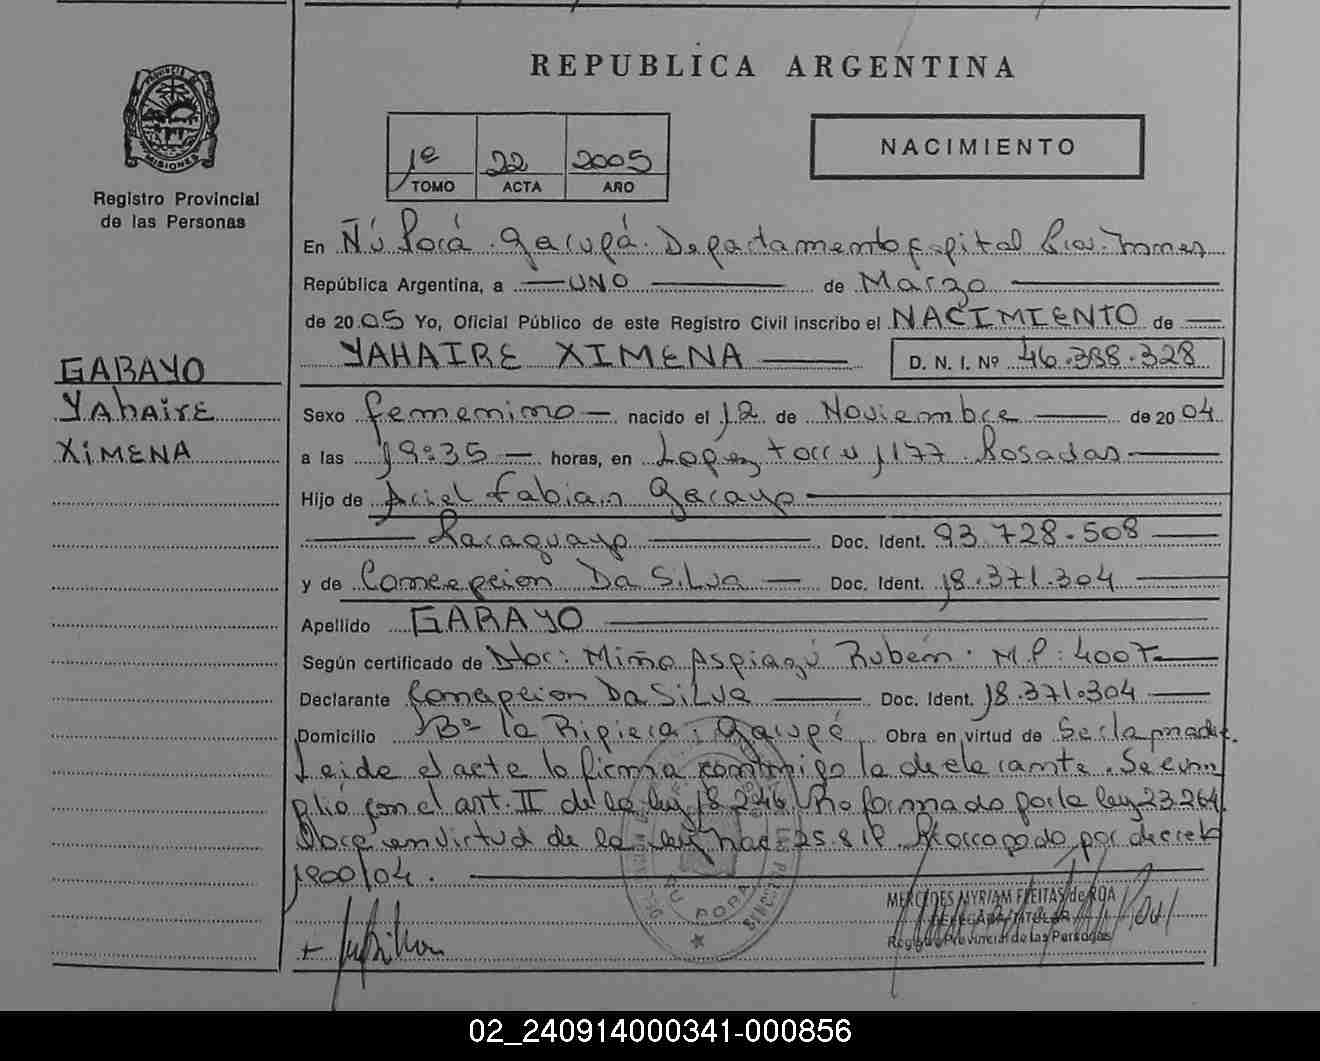 REPUBLICA ARGENTINA
PROVINCIA DE MISIONES
Registro Provincial
de las Personas
1º 22 2005
TOMO ACTA AÑO
NACIMIENTO
En Ñú Porá. Garupá. Departamento Capital Pcia. Misiones
República Argentina, a UNO de Marzo
de 2005 Yo, Oficial Público de este Registro Civil inscribo el NACIMIENTO de
YAHAIRE XIMENA D. N. I. Nº 46.388.328
GARAYO
YAhAiRE
XiMENA
Sexo femenino nacido el 12 de Noviembre de 2004
a las 19:35 horas, en López torres 1177 Posadas
Hijo de Ariel Fabian Garayo
Paraguayo Doc. Ident. 93.728.508
y de Concepcion Da Silva Doc. Ident. 18.371.304
Apellido GARAYO
Según certificado de Doc: Miño Aspiazú Rubén. M.P: 4007
Declarante Concepcion Da Silva Doc. Ident. 18.371.304
Domicilio Bº la Ripiera: Garupá Obra en virtud de Ser la madre.
Leida el acta la firma conmigo la declarante. Se cum
plió con el art. II de la ley 18.246 Reformado por la ley 23.264.
en virtud de la ley nac 25.819 Prorrogado por decreto
1900/04.
ÑU PORA
MERCEDES MYRIAM FREITAS de ROA
DELEGADA TITULAR
Registro Provincial de las Personas
02_240914000341-000856